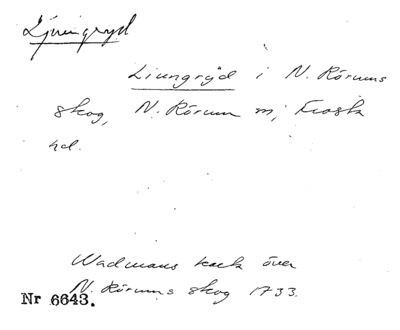 Ljungryd
Liungryd i N. Rörums
skog, N. Rörum m; Frosta
hd.
Wadmans karta över
N. Rörums skog 1733.
Nr 6643.